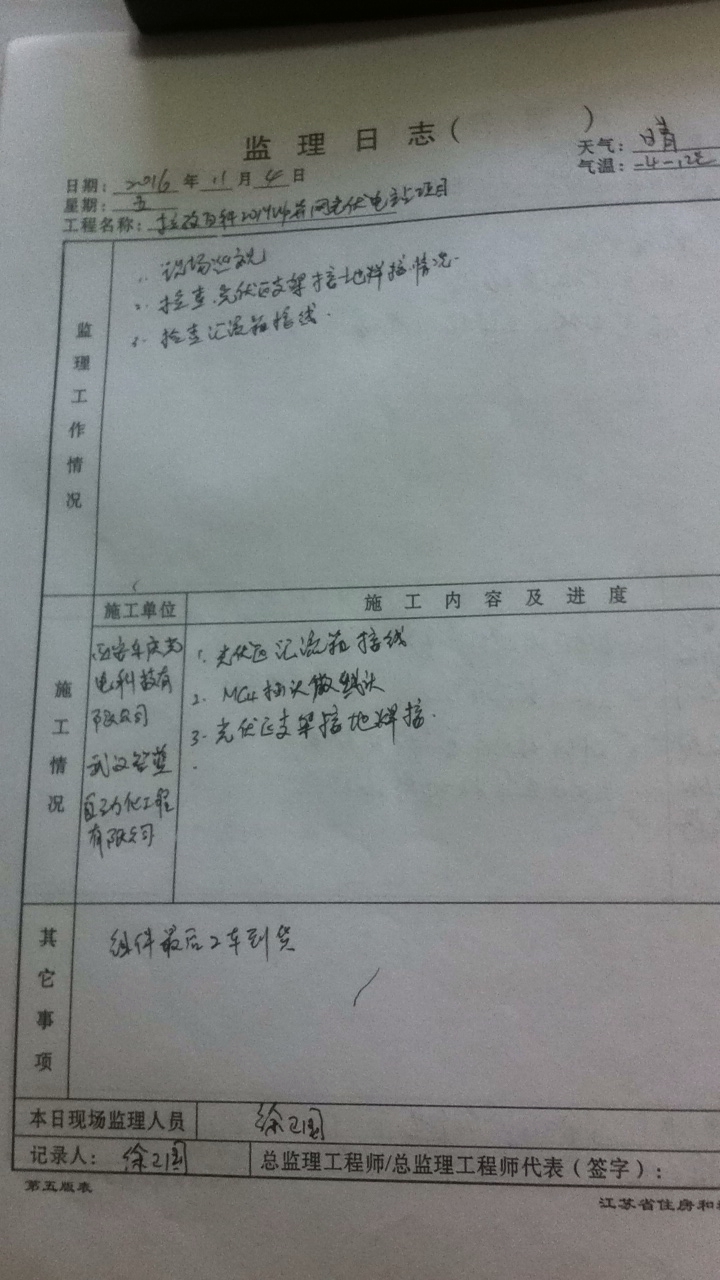 监理日志( )
天气: 晴
气温: -4-12℃
日期: 2016 年 11 月 4 日
星期: 五
工程名称: 并网光伏电站项目
监理工作情况
1. 现场巡视
2. 检查光伏区支架接地焊接情况.
3. 检查汇流箱接线.
施工情况
施工单位
施工内容及进度
电科技有
限公司
武汉
自动化工程
有限公司
1. 光伏区汇流箱接线
2. MC4插头做线头
3. 光伏区支架接地焊接.
其它事项
组件最后2车到货
本日现场监理人员 徐卫国
记录人: 徐卫国
总监理工程师/总监理工程师代表(签字):
第五版表
江苏省住房和